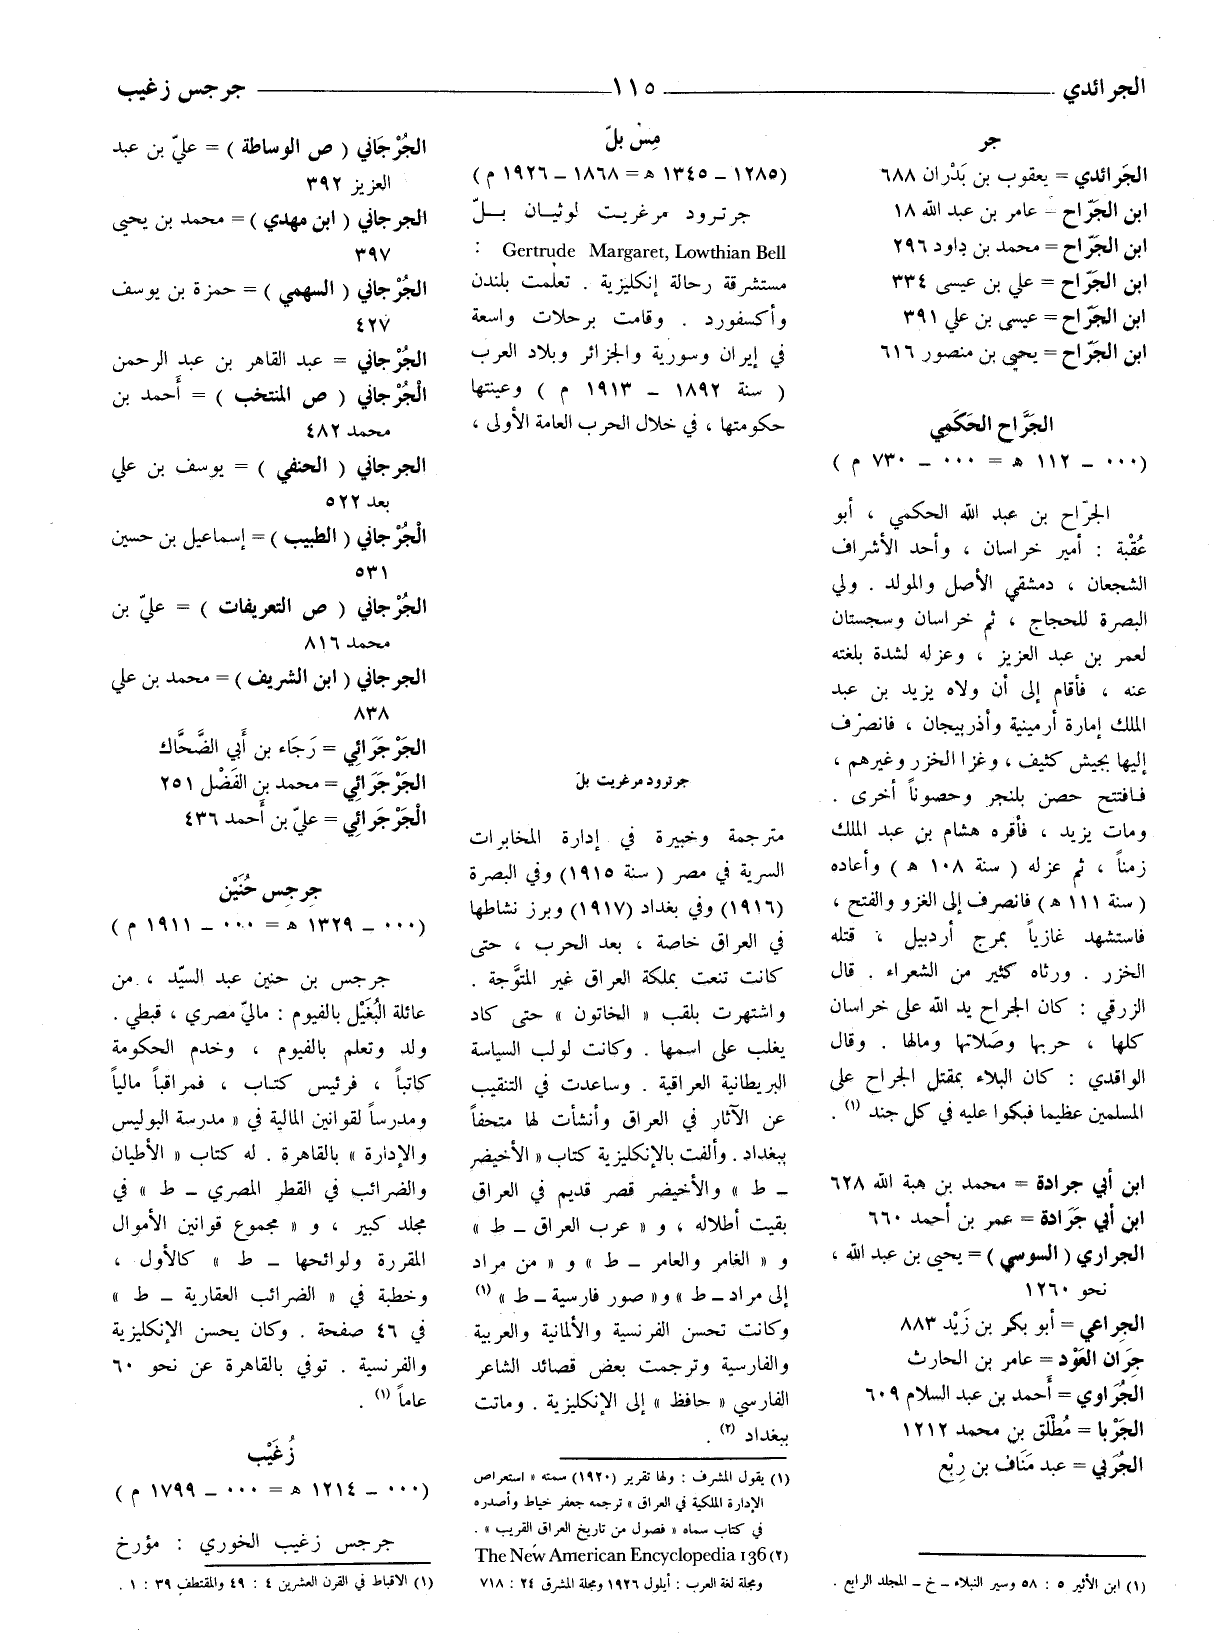 الجرائدي ١١٥ جرجس زغيب
جر
الجَرائدي = يعقوب بن بَدْران ٦٨٨
ابن الجَرّاح = عامر بن عبد الله ١٨
ابن الجَرّاح = محمد بن داود ٢٩٦
ابن الجَرّاح = علي بن عيسى ٣٣٤
ابن الجَرّاح = عيسى بن علي ٣٩١
ابن الجَرّاح = يحيى بن منصور ٦١٦
الجَرَّاح الحَكَمِي
(٠٠٠ ــ ١١٢ هـ = ٠٠٠ ــ ٧٣٠ م )
الجرّاح بن عبد الله الحكمي ، أبو
عُقْبة : أمير خراسان ، وأحد الأشراف
الشجعان ، دمشقي الأصل والمولد . ولي
البصرة للحجاج ، ثم خراسان وسجستان
لعمر بن عبد العزيز ، وعزله لشدة بلغته
عنه ، فأقام إلى أن ولاه يزيد بن عبد
الملك إمارة أرمينية وأذربيجان ، فانصرْف
إليها بجيش كثيف ، وغزا الخزر وغيرهم ،
فافتتح حصن بلنجر وحصوناً أخرى .
ومات يزيد ، فأقره هشام بن عبد الملك
زمناً ، ثم عزله ( سنة ١٠٨ هـ ) وأعاده
( سنة ١١١ هـ ) فانصرف إلى الغزو والفتح ،
فاستشهد غازياً بمرج أردبيل ، قتله
الخزر . ورثاه كثير من الشعراء . قال
الزرقي : كان الجراح يد الله على خراسان
كلها ، حربها وصَلاتها ومالها . وقال
الواقدي : كان البلاء بمقتل الجراح على
المسلمين عظيما فبكوا عليه في كل جند (١) .
ابن أبي جرادة = محمد بن هبة الله ٦٢٨
ابن أبي جَرَادة = عمر بن أحمد ٦٦٠
الجراري ( السوسي ) = يحيى بن عبد الله ،
نحو ١٢٦٠
الجِراعي = أبو بكر بن زَيْد ٨٨٣
جِرَان العَوْد = عامر بن الحارث
الجُرَاوي = أَحمد بن عبد السلام ٦٠٩
الجَرْبا = مُطْلَق بن محمد ١٢١٢
الجُرَبي = عبد مَنَاف بن رِبْع
(١) ابن الأثير ٥ : ٥٨ وسير النبلاء ــ خ ــ المجلد الرابع .
مِسْ بلّ
(١٢٨٥ ــ ١٣٤٥ هـ = ١٨٦٨ ــ ١٩٢٦ م )
جرترود مرغريت لوثيان بلّ
Gertrude Margaret, Lowthian Bell :
مستشرقة رحالة إنكليزية . تعلّمت بلندن
وأكسفورد . وقامت برحلات واسعة
في إيران وسورية والجزائر وبلاد العرب
( سنة ١٨٩٢ ــ ١٩١٣ م ) وعينتها
حكومتها ، في خلال الحرب العامة الأولى ،
جرترود مرغريت بلّ
مترجمة وخبيرة في إدارة المخابرات
السرية في مصر ( سنة ١٩١٥) وفي البصرة
(١٩١٦) وفي بغداد (١٩١٧) وبرز نشاطها
في العراق خاصة ، بعد الحرب ، حتى
كانت تنعت بملكة العراق غير المتوَّجة .
واشتهرت بلقب « الخاتون » حتى كاد
يغلب على اسمها . وكانت لولب السياسة
البريطانية العراقية . وساعدت في التنقيب
عن الآثار في العراق وأنشأت لها متحفاً
ببغداد . وألفت بالإنكليزية كتاب « الأخيضر
ــ ط » والأخيضر قصر قديم في العراق
بقيت أطلاله ، و « عرب العراق ــ ط »
و « الغامر والعامر ــ ط » و « من مراد
إلى مراد ــ ط » و« صور فارسية ــ ط » (١)
وكانت تحسن الفرنسية والألمانية والعربية
والفارسية وترجمت بعض قصائد الشاعر
الفارسي « حافظ » إلى الإنكليزية . وماتت
ببغداد (٢) .
(١) يقول المشرف : ولها تقرير (١٩٢٠) سمته « استعراض
الإدارة الملكية في العراق » ترجمه جعفر خياط وأصدره
في كتاب سماه « فصول من تاريخ العراق القريب » .
(٢) The New American Encyclopedia 136
ومجلة لغة العرب : أيلول ١٩٢٦ ومجلة المشرق ٢٤ : ٧١٨
الجُرْجَاني ( ص الوساطة ) = عليّ بن عبد
العزيز ٣٩٢
الجرجاني ( ابن مهدي ) = محمد بن يحيى
٣٩٧
الجُرْجاني ( السهمي ) = حمزة بن يوسف
٤٢٧
الجُرْجاني = عبد القاهر بن عبد الرحمن
الْجُرْجاني ( ص المنتخب ) = أَحمد بن
محمد ٤٨٢
الجرجاني ( الحنفي ) = يوسف بن علي
بعد ٥٢٢
الْجُرْجاني ( الطبيب ) = إسماعيل بن حسين
٥٣١
الجُرْجاني ( ص التعريفات ) = عليّ بن
محمد ٨١٦
الجرجاني ( ابن الشريف ) = محمد بن علي
٨٣٨
الجَرْجَرَائِي = رَجَاء بن أَبي الضَّحَّاك
الجَرْجَرَائِي = محمد بن الفَضْل ٢٥١
الْجَرْجَرائي = عليّ بن أَحمد ٤٣٦
جِرجِس حُنَيْن
(٠٠٠ ــ ١٣٢٩ هـ = ٠٠٠ ــ ١٩١١ م )
جرجس بن حنين عبد السيّد ، من
عائلة البُغَيْل بالفيوم : ماليّ مصري ، قبطي .
ولد وتعلم بالفيوم ، وخدم الحكومة
كاتباً ، فرئيس كتاب ، فمراقباً مالياً
ومدرساً لقوانين المالية في « مدرسة البوليس
والإدارة » بالقاهرة . له كتاب « الأطيان
والضرائب في القطر المصري ــ ط » في
مجلد كبير ، و « مجموع قوانين الأموال
المقررة ولوائحها ــ ط » كالأول ،
وخطبة في « الضرائب العقارية ــ ط »
في ٤٦ صفحة . وكان يحسن الإنكليزية
والفرنسية . توفي بالقاهرة عن نحو ٦٠
عاماً (١) .
زُغَيْب
(٠٠٠ ــ ١٢١٤ هـ = ٠٠٠ ــ ١٧٩٩ م )
جرجس زغيب الخوري : مؤرخ
(١) الاقباط في القرن العشرين ٤ : ٤٩ والمقتطف ٣٩ : ١ .